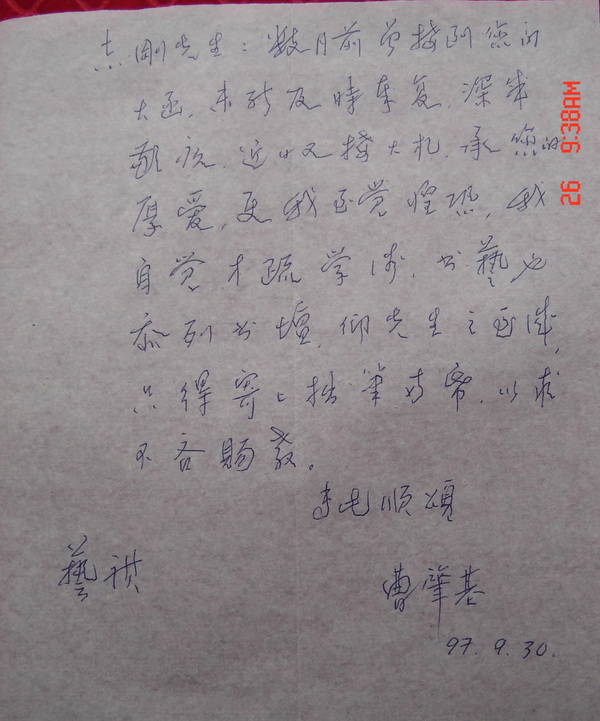 志刚先生：数月前曾接到您的
大函，未能及时奉复，深年
歉疚，近日又接大札，承您的
厚爱，更我至觉惶恐，我
自觉才疏学浅，书藝也
忝列书壇，仰先生之至诚，
只得寄上拙笔方帋，以求
不吝赐教。
专此顺颂
藝祺
曹肇基
97.9.30.
26 9:38AM